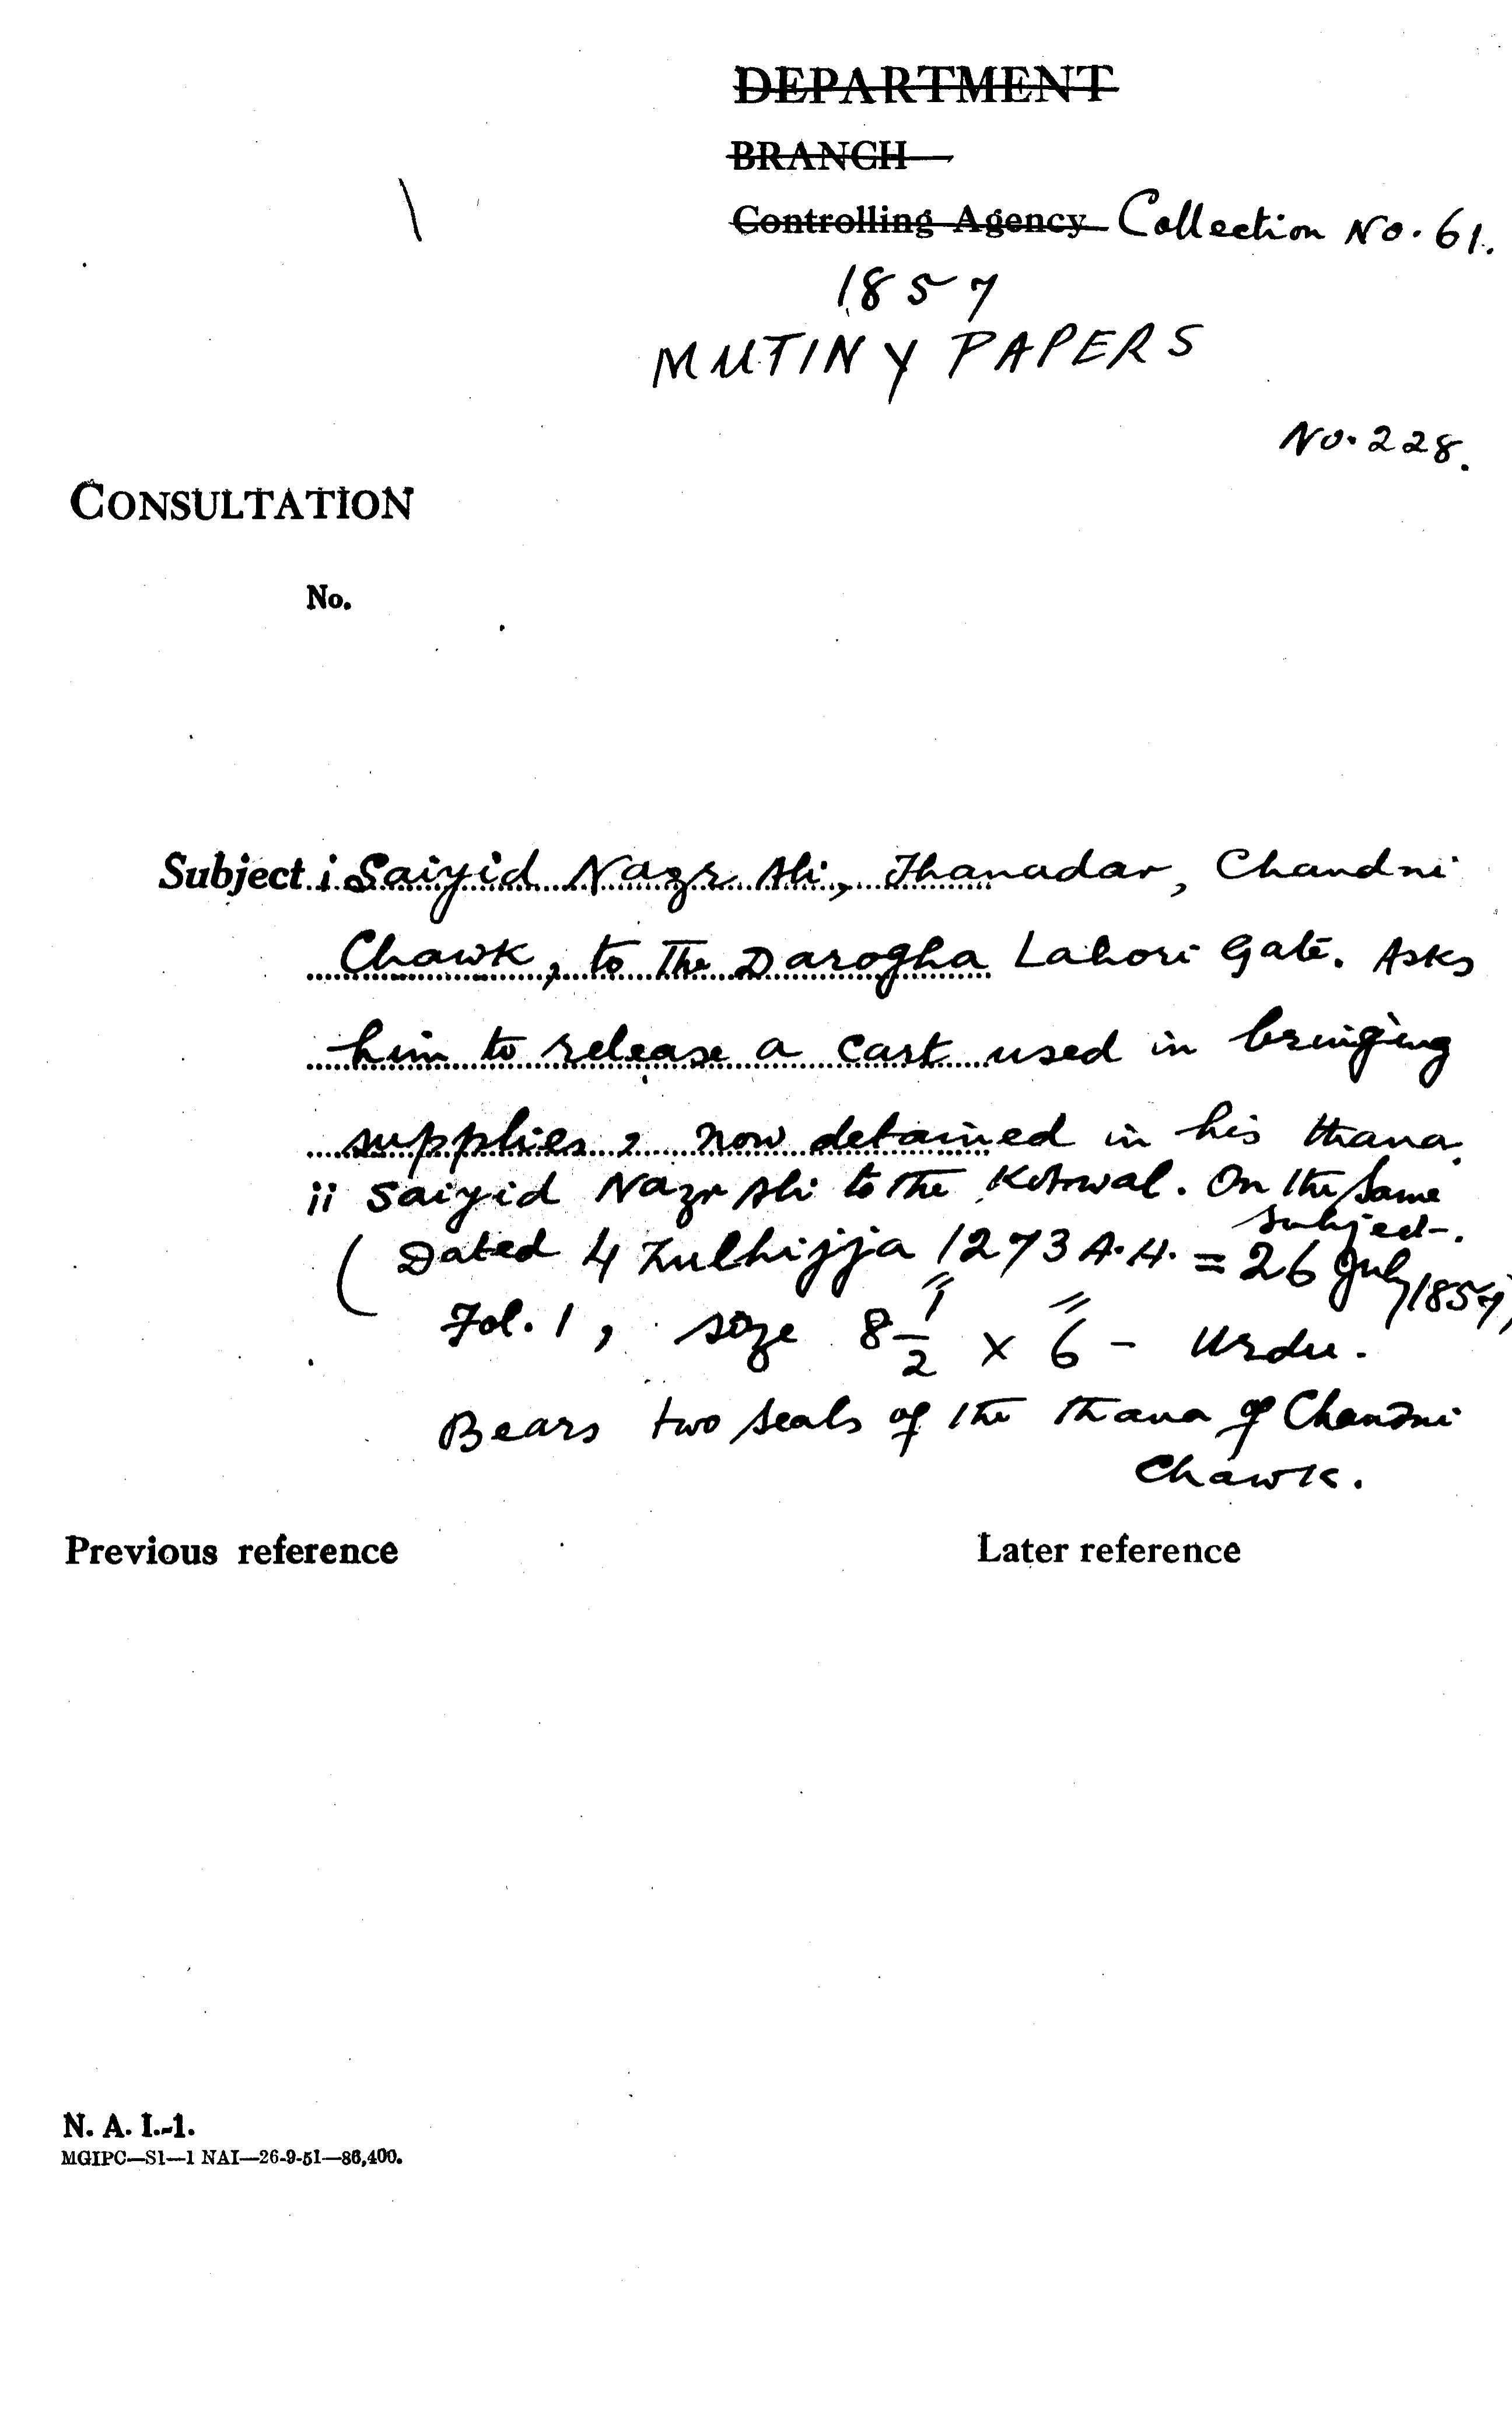 DEPARTMENT
BRANCH
Controlling Agency Collection No. 61.
1857
MUTINY PAPERS
No. 228.
CONSULTATION
No.
Subject i Saiyid Nazr Ali, Thanadar, Chandni
Chawk, to the Darogha Lahori Gate. Asks
him to release a cart used in bringing
supplies, now detained in his thana.
ii Saiyid Nazr Ali to the Kotwal. On the same
subject.
(Dated 4 Zulhijja 1273 A.H. = 26 July 1857)
Fol. 1, size 8 1/2" x 6" - Urdu.
Bears two seals of the thana of Chandni
Chawk.
Previous reference Later reference
N. A. I.-1.
MGIPC—S1—1 NAI—26-9-51—86,400.